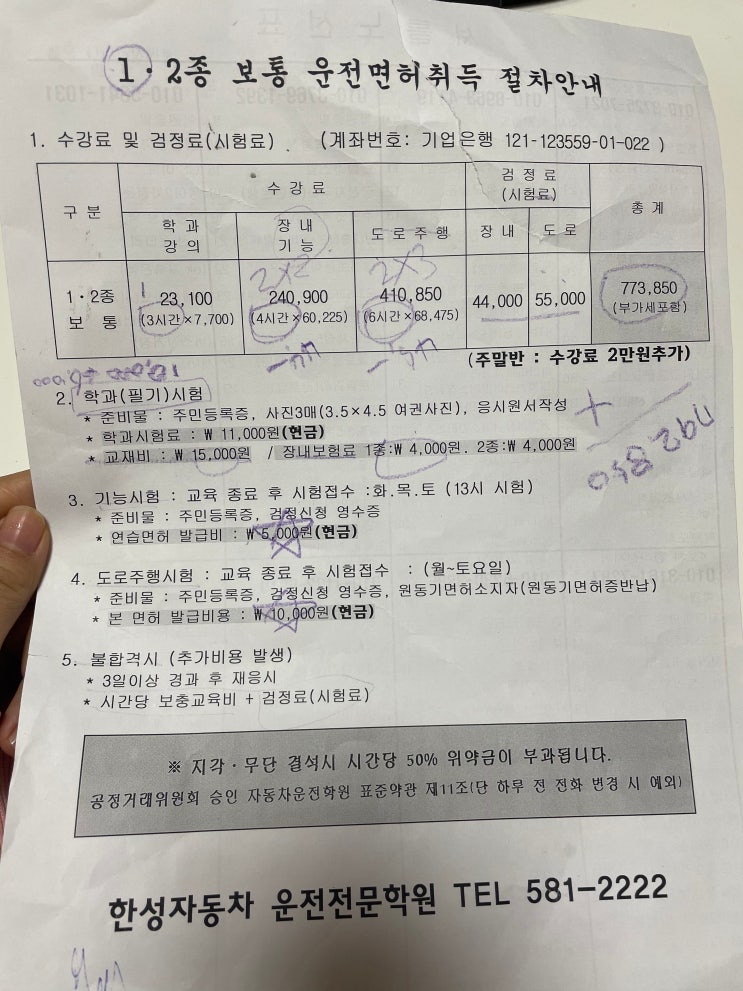 1·2종 보통 운전면허취득 절차안내
1. 수강료 및 검정료(시험료) (계좌번호: 기업은행 121-123559-01-022 )
구 분 수 강 료 검 정 료 (시험료) 총 계
학 과 강 의 장 내 기 능 도 로 주 행 장 내 도 로
2×2 2×3
1·2종 보 통 23,100 240,900 410,850 44,000 55,000 773,850
(3시간×7,700) (4시간×60,225) (6시간×68,475) (부가세포함)
(주말반 : 수강료 2만원추가)
2. 학과(필기)시험
* 준비물 : 주민등록증, 사진3매(3.5×4.5 여권사진), 응시원서작성
* 학과시험료 : ₩ 11,000원(현금)
* 교재비 : ₩ 15,000원 / 장내보험료 1종:₩ 4,000원. 2종:₩ 4,000원
792850
3. 기능시험 : 교육 종료 후 시험접수 :화.목.토 (13시 시험)
* 준비물 : 주민등록증, 검정신청 영수증
* 연습면허 발급비 : ₩ 5,000원(현금)
4. 도로주행시험 : 교육 종료 후 시험접수 : (월~토요일)
* 준비물 : 주민등록증, 검정신청 영수증, 원동기면허소지자(원동기면허증반납)
* 본 면허 발급비용 : ₩ 10,000원(현금)
5. 불합격시 (추가비용 발생)
* 3일이상 경과 후 재응시
* 시간당 보충교육비 + 검정료(시험료)
※ 지각·무단 결석시 시간당 50% 위약금이 부과됩니다.
공정거래위원회 승인 자동차운전학원 표준약관 제11조(단 하루 전 전화 변경 시 예외)
한성자동차 운전전문학원 TEL 581-2222